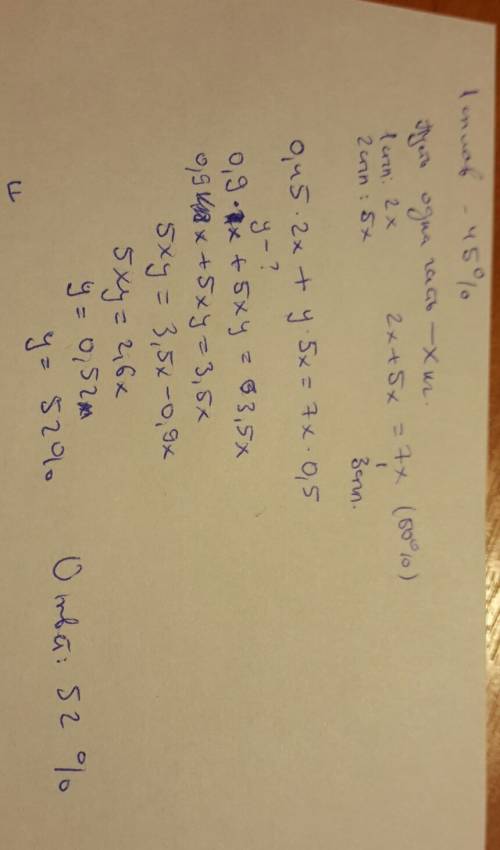 1 сплав - 45%
Пусть одна часть — х кг.
1 спл: 2x 2x + 5x = 7x (50%)
2 спл: 5x 3 спл.
0,45 · 2x + y · 5x = 7x · 0,5
y - ?
0,9 · x + 5xy = 3,5x
0,9x + 5xy = 3,5x
5xy = 3,5x - 0,9x
5xy = 2,6x
y = 0,52
y = 52% Ответ: 52 %